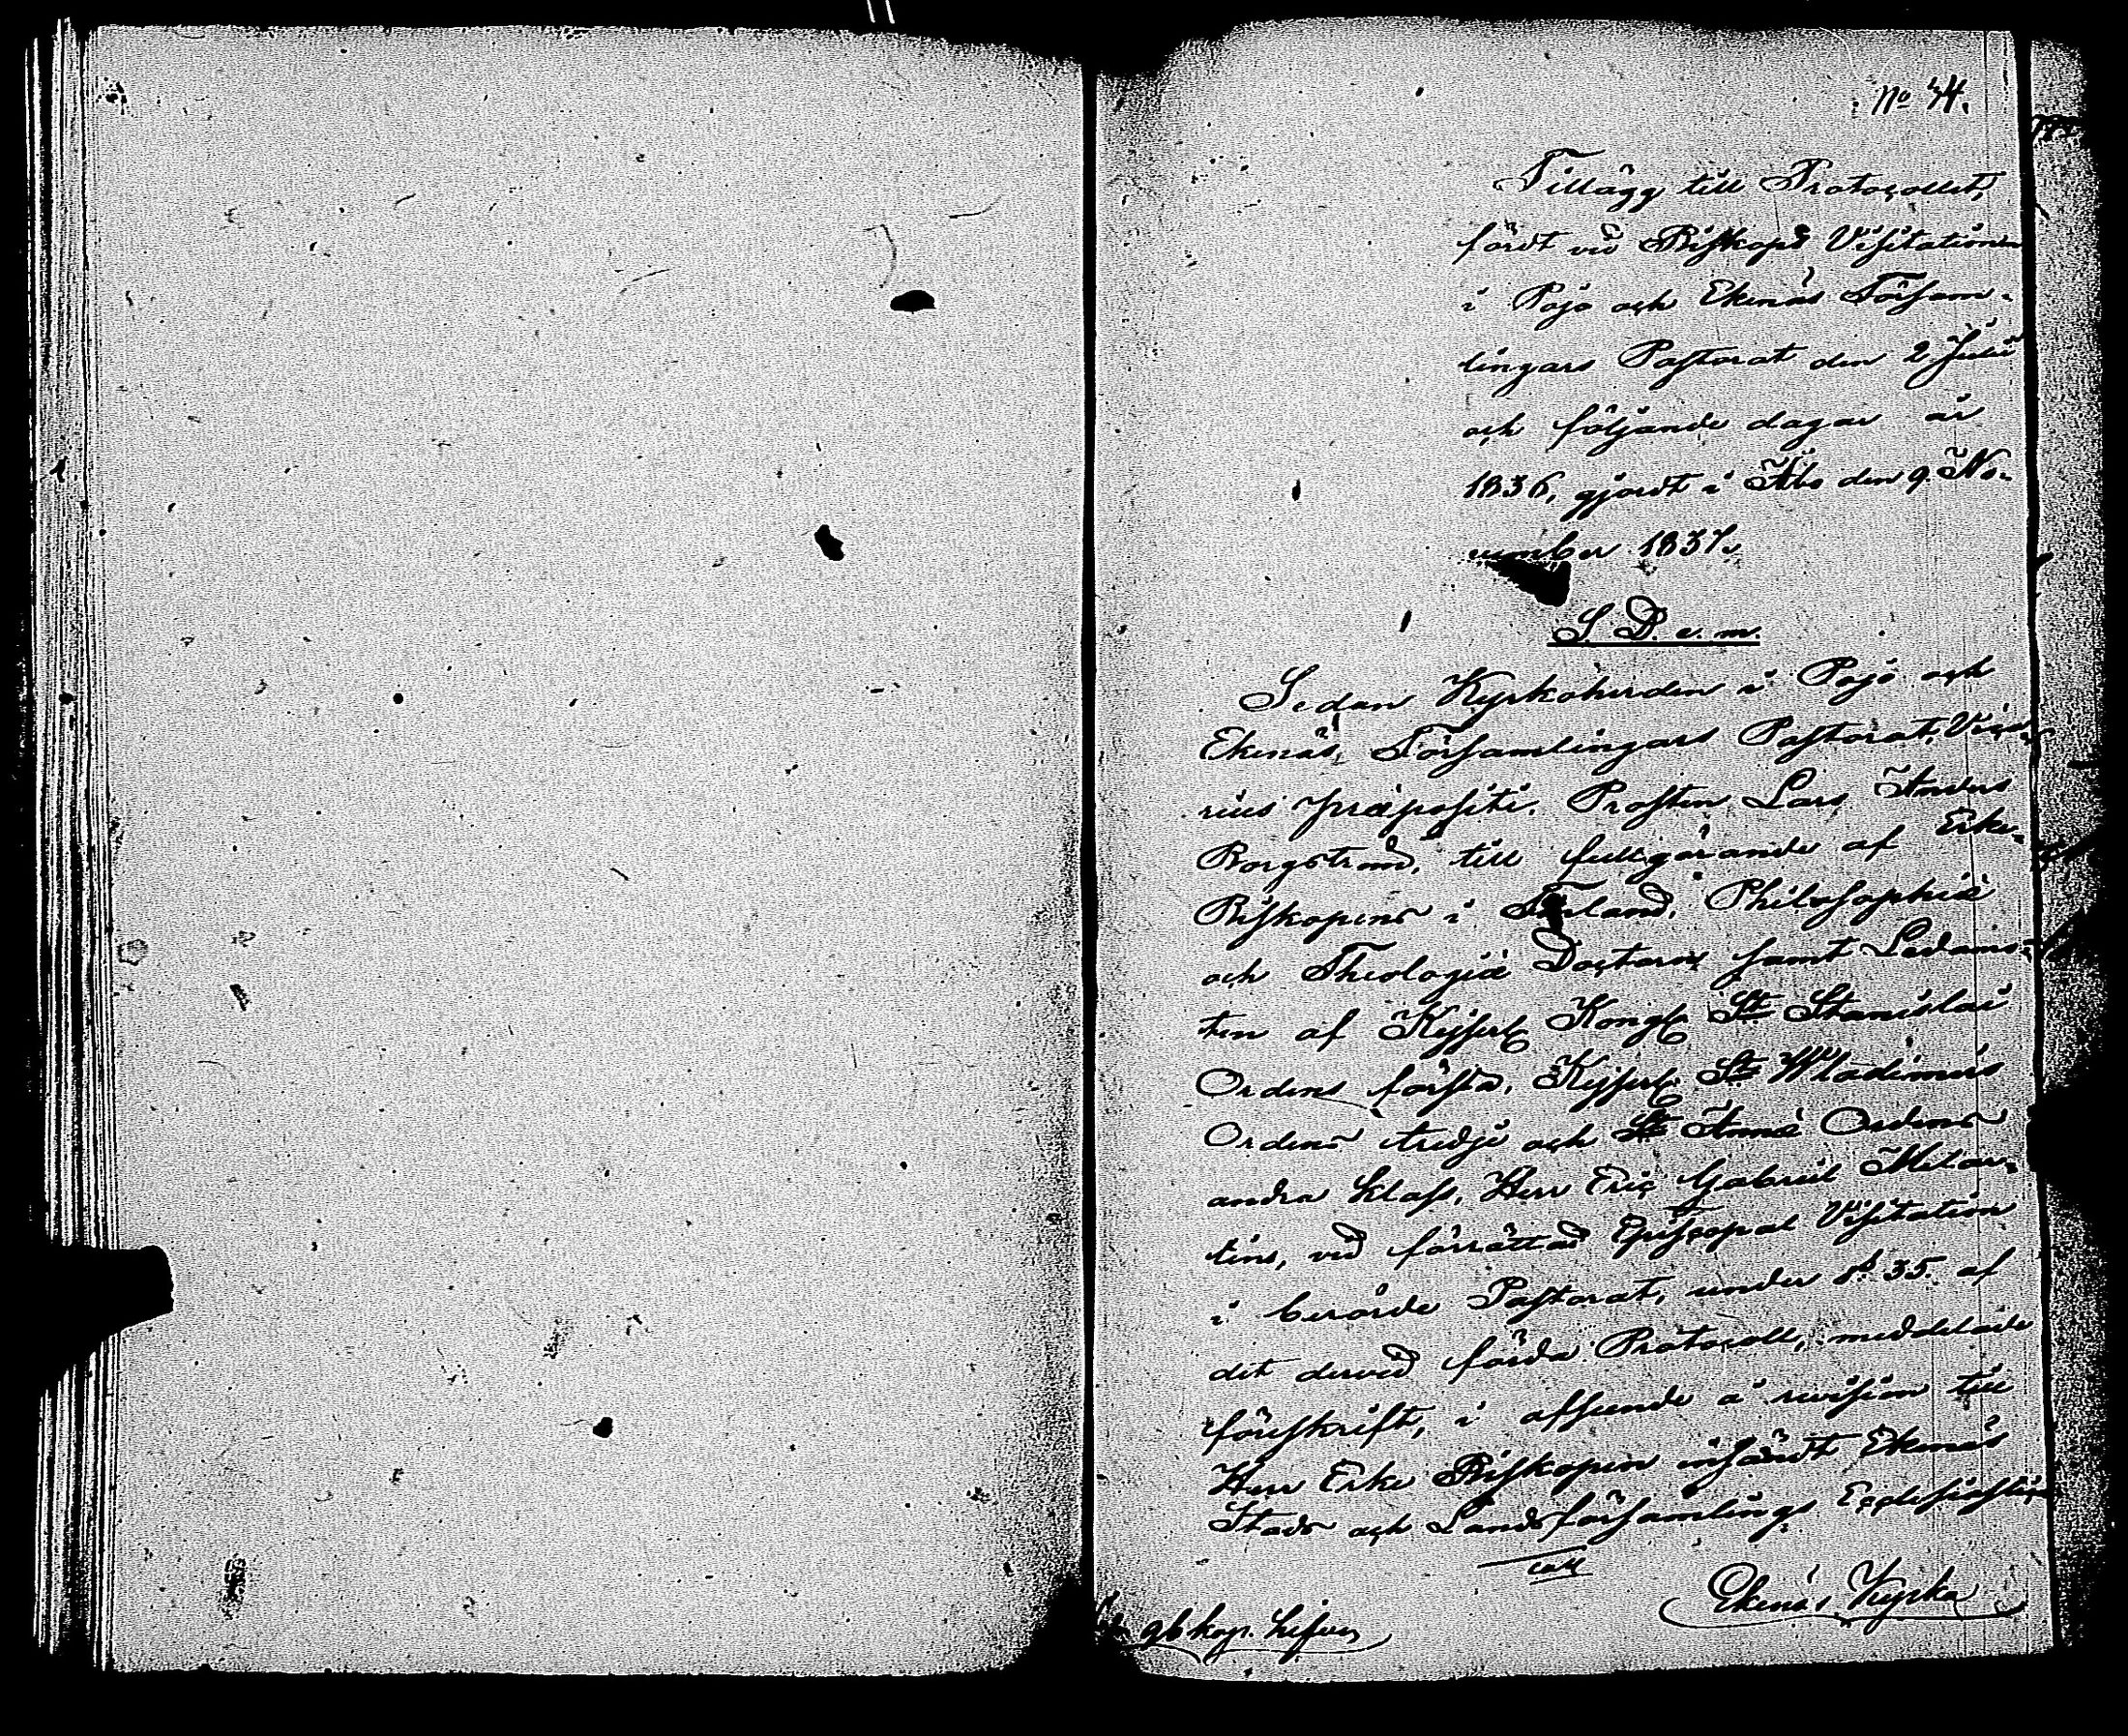 No 34.
Tillägg till Protocollet,
fördt vid Biskops Visitationen
i Pojo och Ekenäs Försam-
lingars Pastorat den 2 Julii
och följande dagar år
1836, gjordt i Åbo den 9. No-
vember 1837.
S. D. e. m.
Sedan Kyrkoherden i Pojo och
Ekenäs Församlingars Pastorat, Vica-
rius præpositi, Prosten Lars Anders
Borgström, till fullgörande af Erke-
Biskopens i Finland, Philosophiæ
och Theologiæ Doctorn samt Ledamo-
ten af Kejserl. Kongl. St. Stanislai
Ordens första, Kejserl. St. Wladimirs
Ordens tredje och St. Annæ Ordens
andra Klass, Herr Eric Gabriel Melar-
tins, vid förrättad Episcopal Visitation
i berörde Pastorat, under §. 35. af
det dervid förda Protocoll, meddelade
föreskrift, i afseende å revision till
Herr Erke Biskopen insändt Ekenäs
Stads och Landsförsamlings Ecclesiastic
Ekenäs Kyrka
96 kop. Silfver